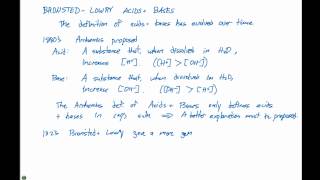 BRONSTED - LOWRY ACIDS + BASES
The definition of acids + bases has evolved over time
1880's Arrhenius proposed
Acid: A substance that, when dissolved in H2O,
Increase [H+]. ([H+] > [OH-])
Base: A substance that, when dissolved in H2O,
Increase [OH-]. ([OH-] > [H+])
The Arrhenius def. of Acids + Bases only defines acids
+ bases in aqs. solns ⟹ A better explanation must be proposed
1923 Bronsted + Lowry gave a more gen